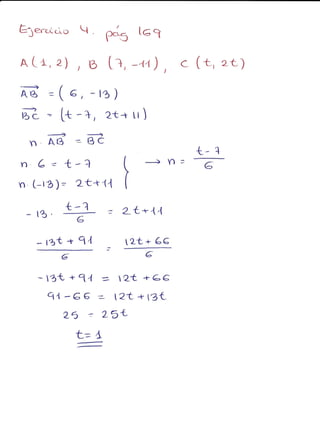 Ejercicio 4. pág 169
A(1,2), B(7,-11), C(t,2t)
AB = (6, -13)
BC = (t-7, 2t+11)
n · AB = BC
n · 6 = t-7
n · (-13) = 2t+11
→ n = t-7/6
-13 · t-7/6 = 2t+11
-13t+91/6 = 12t+66/6
-13t+91 = 12t+66
91-66 = 12t+13t
25 = 25t
t=1